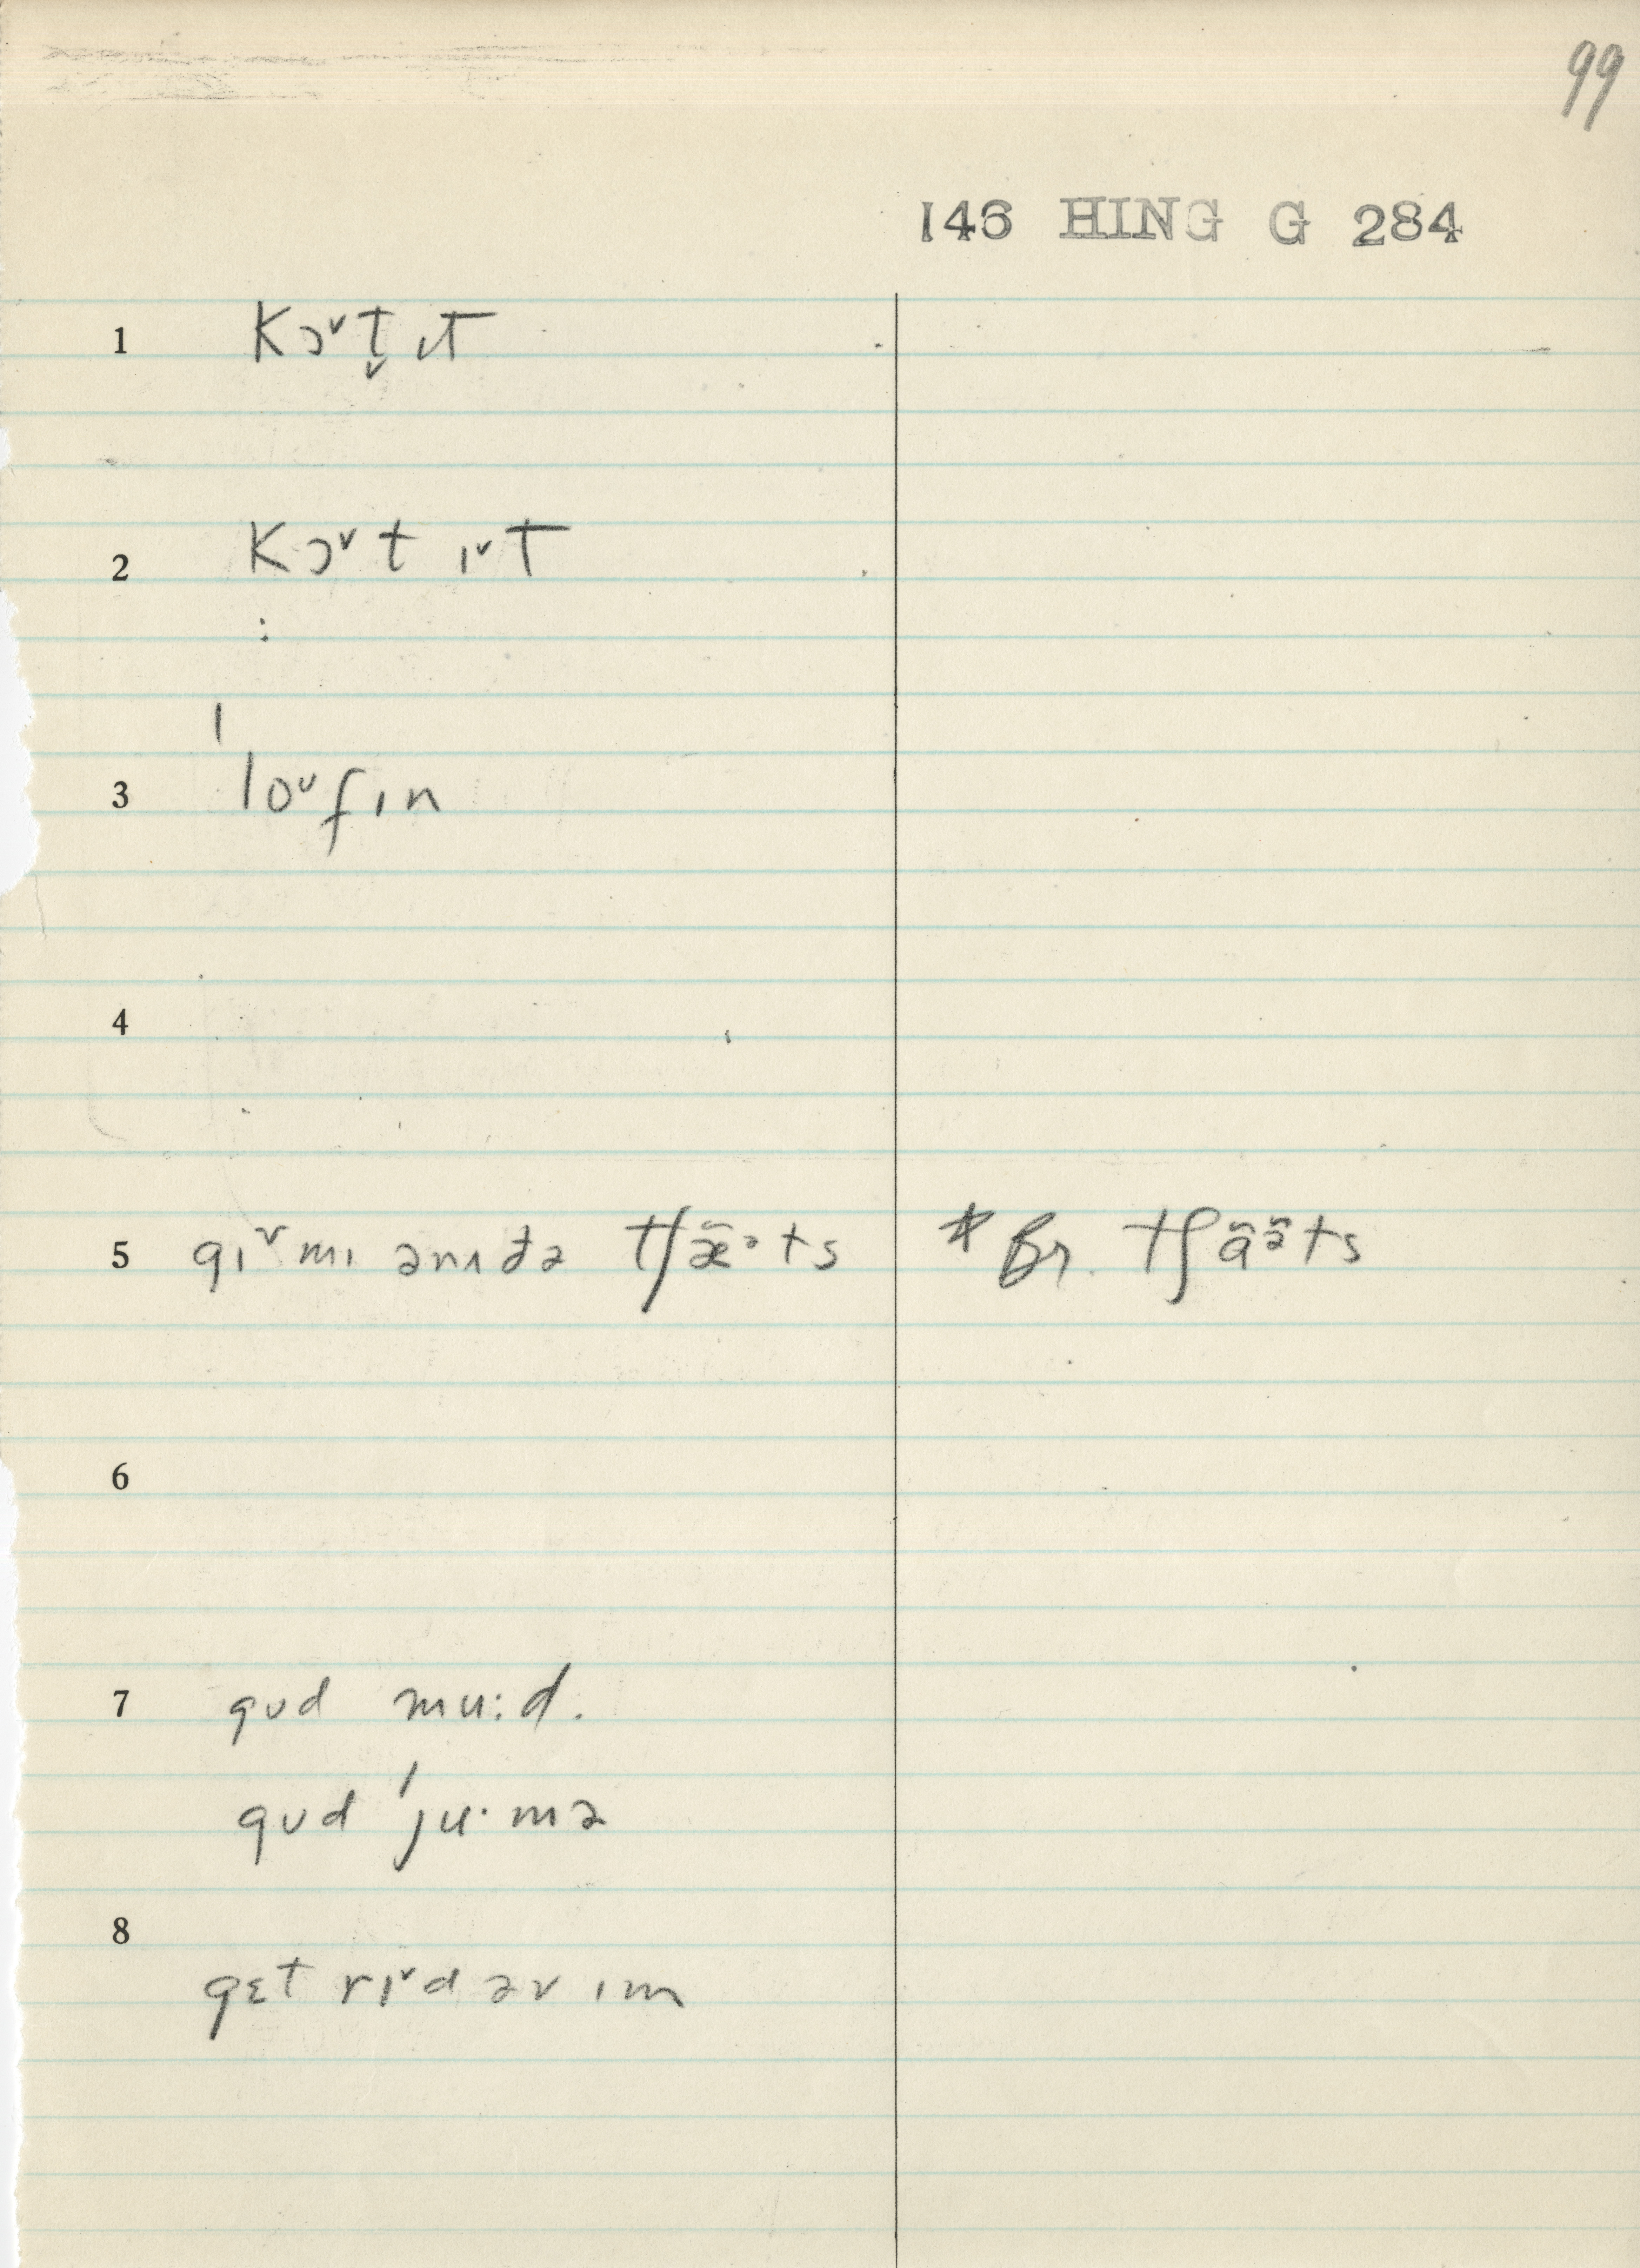 99
146 HING G 284
1 kɔ˅t̬ ɪt
2 kɔ˅t ɪ˅t
:
3 ˈloᴜfɪn
4
5 gɪ˅mɪ ənʌðə tʃæ̃ᵊts * Br. tʃãə̃ts
6
7 gʊd mu:d.
gʊd ˈju·mə
8
gɛt rɪ˅d əv ɪm